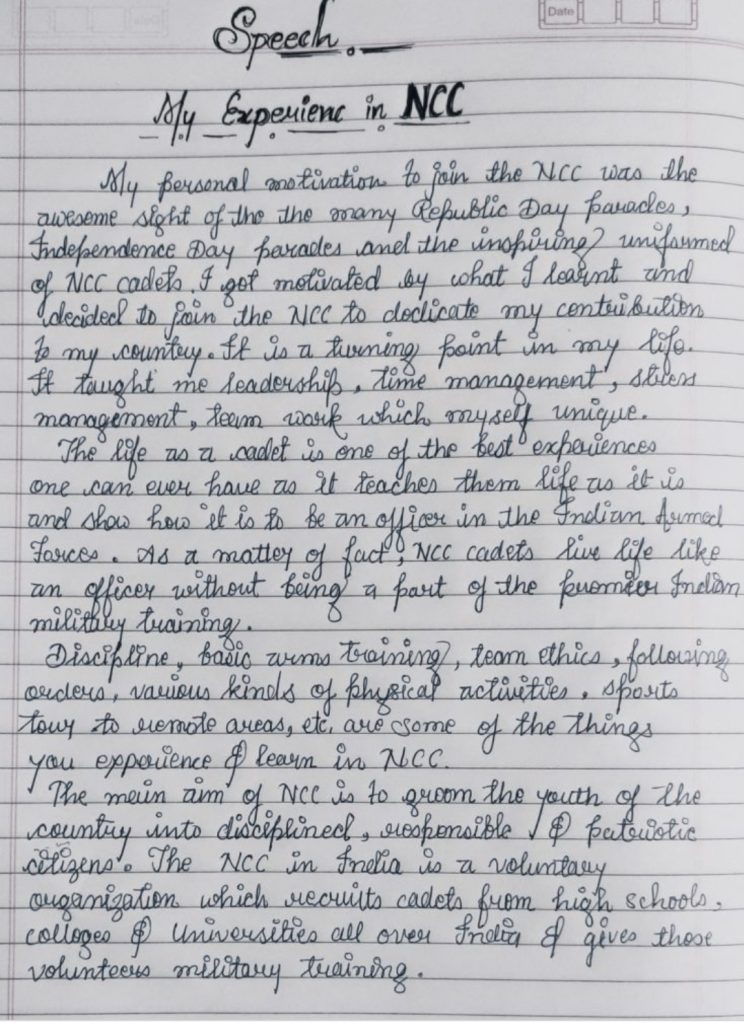 Date
Speech.
My Experienc in NCC
My personal motivation to join the NCC was the
aweseme sight of the the many Republic Day parades,
Independence Day parades and the inspiring uniformed
of NCC cadets. I got motivated by what I learnt and
decided to join the NCC to dedicate my contribution
to my country. It is a turning point in my life.
It taught me leadership, time management, stress
management, team work which myself unique.
The life as a cadet is one of the best experiences
one can ever have as it teaches them life as it is
and show how it is to be an officer in the Indian Armed
Forces. As a matter of fact, NCC cadets live life like
an officer without being a part of the Indian
military training.
Discipline, basic arms training, team ethics, following
orders, various kinds of physical activities. sports
tour to remote areas, etc. are some of the things
you experience & learn in NCC.
The main aim of NCC is to groom the youth of the
country into disciplined, responsible & patriotic
citizens. The NCC in India is a voluntary
organization which recruits cadets from high schools,
colleges & Universities all over India & gives those
volunteers military training.